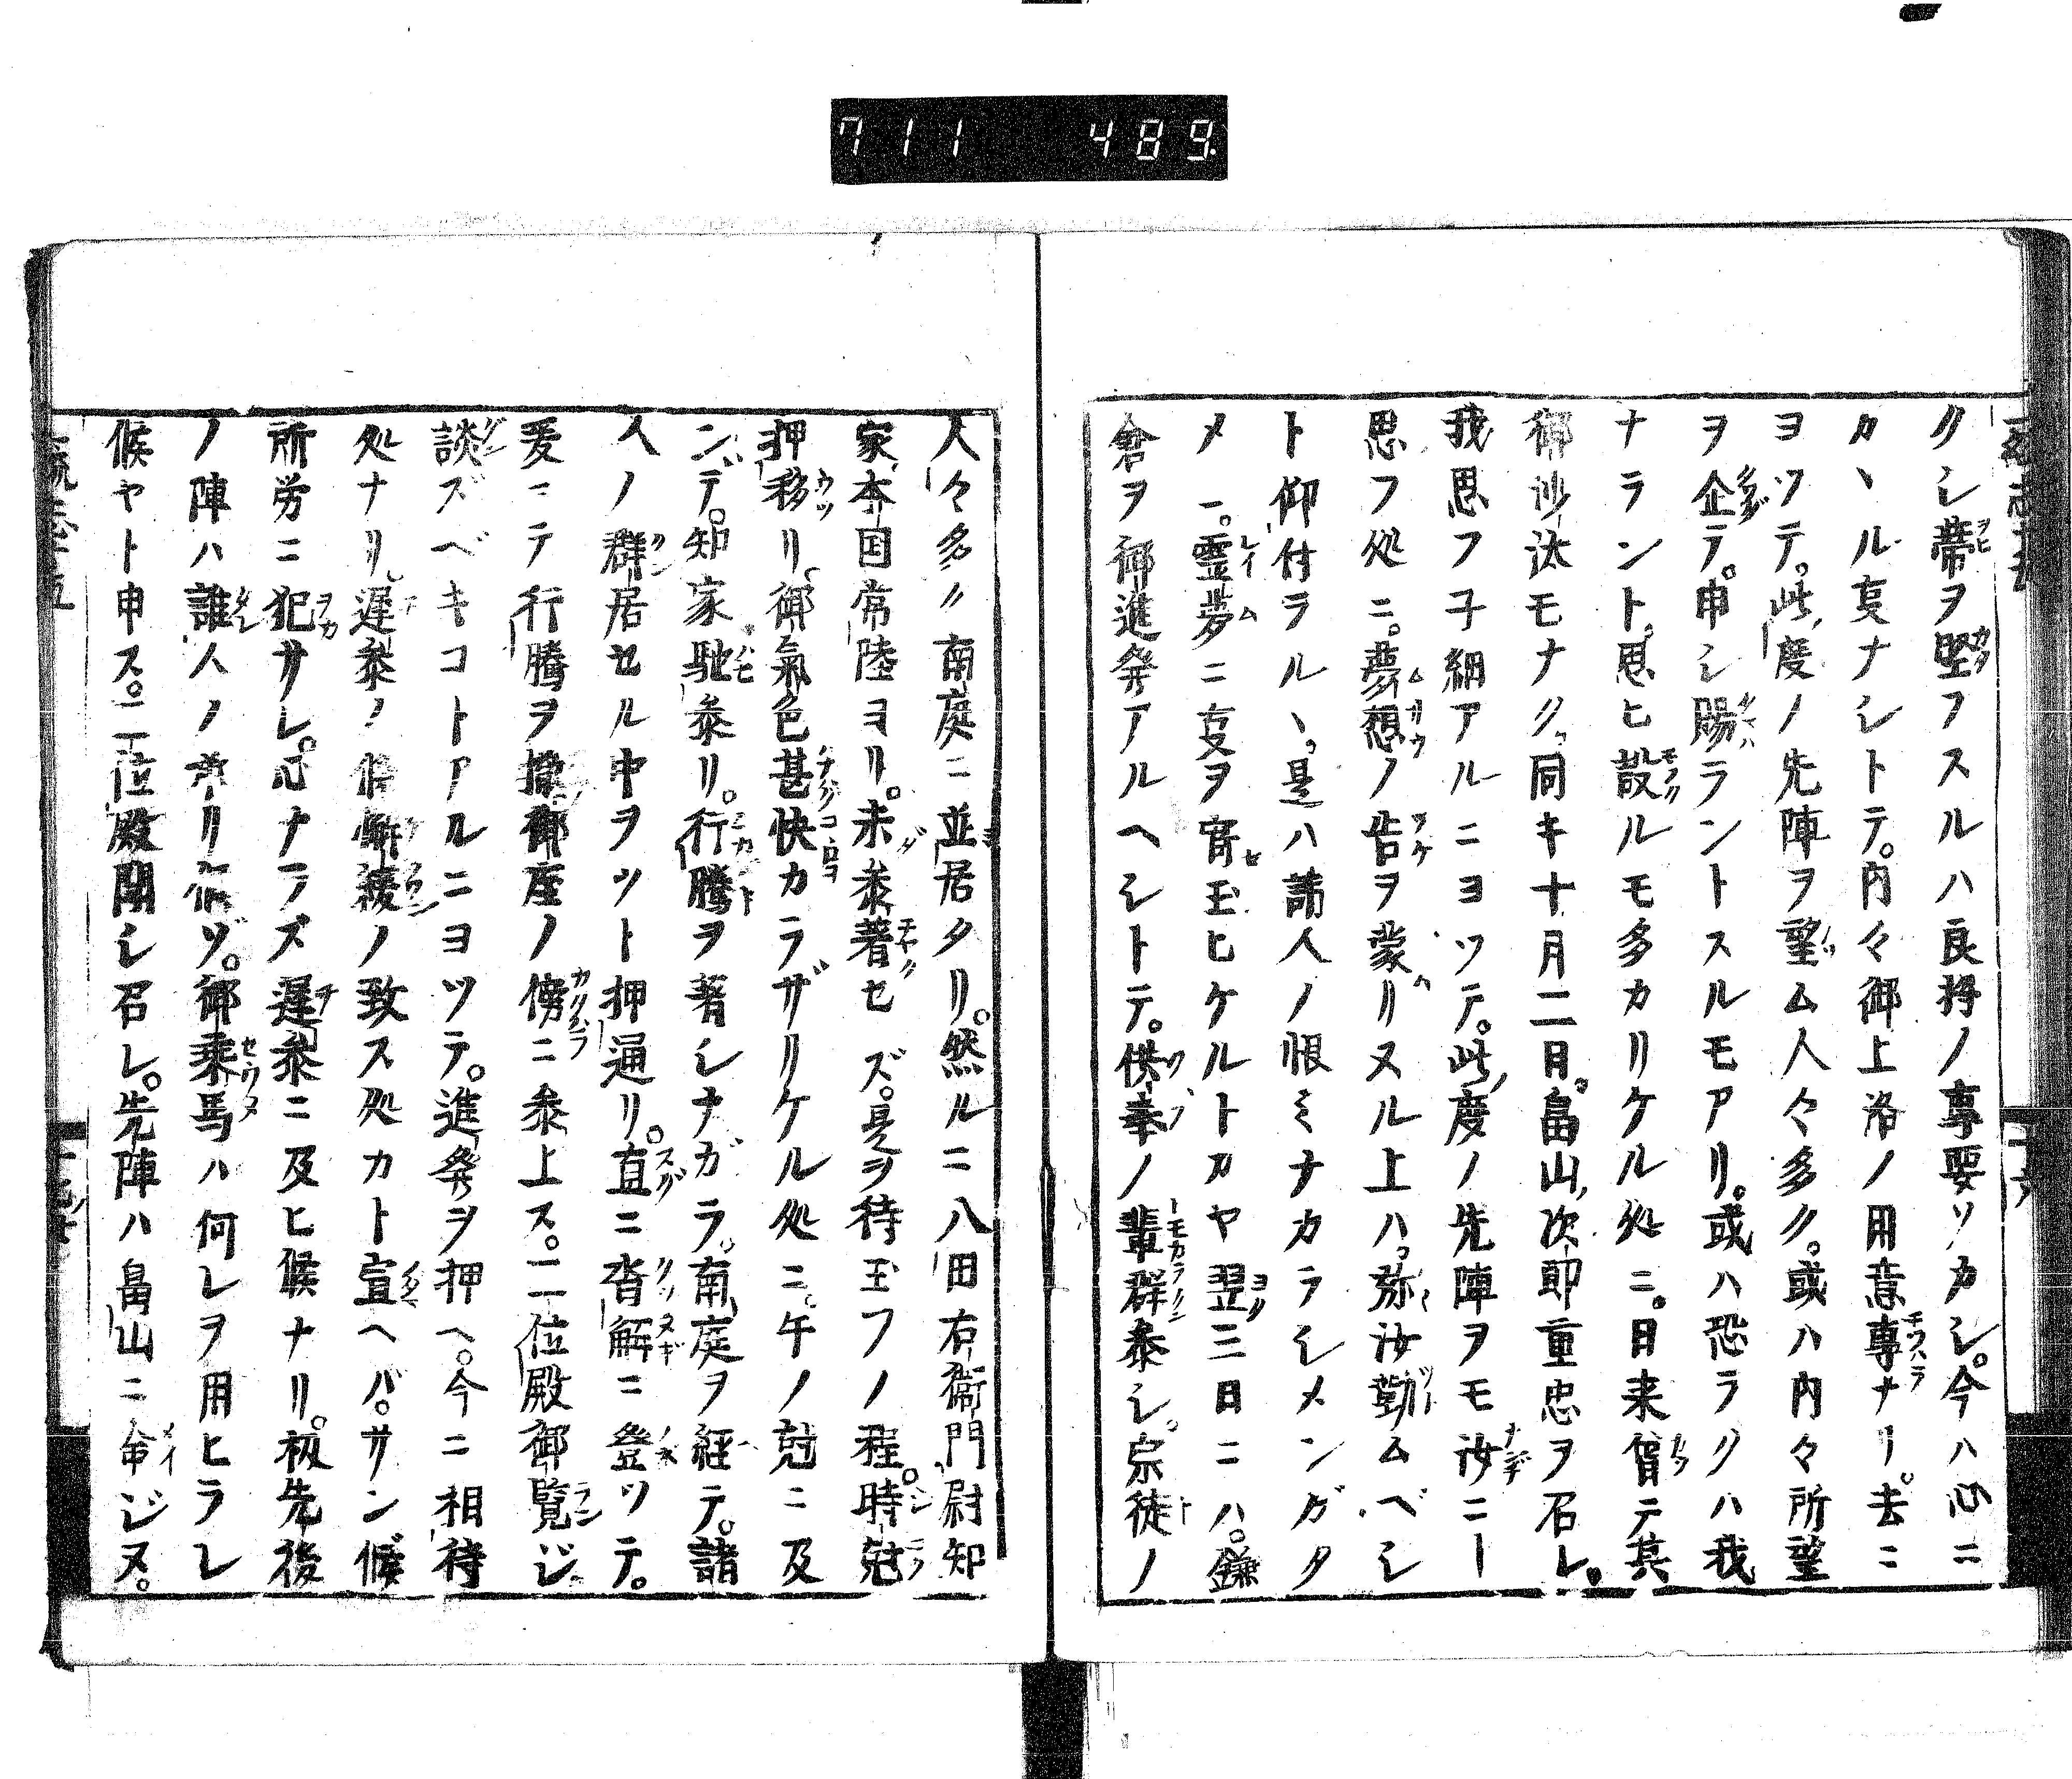 711 489
クシ帯ヲ堅フスルハ良将ノ専要ソカシ。今ハ心ニ
カヽル亊ナシトテ。内々御上洛ノ用意専ナリ。去ニ
ヨツテ。此度ノ先陣ヲ望ム人々多ク。或ハ内々所望
ヲ企テ。申シ賜ラントスルモアリ。或ハ恐ラクハ我
ナラント。思ヒ設ルモ多カリケル処ニ。日来省テ其
御沙汰モナク。同キ十月二日。畠山次郎重忠ヲ召レ。
我思フ子細アルニヨツテ。此度ノ先陣ヲモ汝ニー
思フ処ニ。夢想ノ告ヲ蒙リヌル上ハ。弥汝勤ムベシ
ト仰付ラルヽ。是ハ諸人ノ恨ミナカラシメンガタ
メ一。霊夢ニ亊ヲ寄玉ヒケルトカヤ翌三日ニハ。鎌
倉ヲ御進発アルヘシトテ。供奉ノ輩群参シ。宗徒ノ
人々多ク南庭ニ並居タリ。然ルニ八田右衛門尉知
家、本国常陸ヨリ。未参著セズ。是ヲ待玉フノ程。時尅
押移リ。御氣色甚快カラザリケル処ニ。午ノ尅ニ及
ンデ。知家馳参リ。行騰ヲ著シナガラ。南庭ヲ経テ。諸
人ノ群居セル中ヲツト押通リ。直ニ沓解ニ登ツテ。
爰ニテ行騰ヲ撤御座ノ傍ニ参上ス。二位殿御覧ジ
談ズベキコトアルニヨツテ。進発ヲ押ヘ。今ニ相待
処ナリ。遅参ノ條懈緩ノ致ス処カト宣ヘバ。サン候
所労ニ犯サレ。心ナラズ遅参ニ及ヒ候ナリ。扨先後
ノ陣ハ誰人ノ承リ候ゾ。御乗馬ハ何レヲ用ヒラレ
候ヤト申ス。二位殿聞シ召レ。先陣ハ畠山ニ命ジヌ。